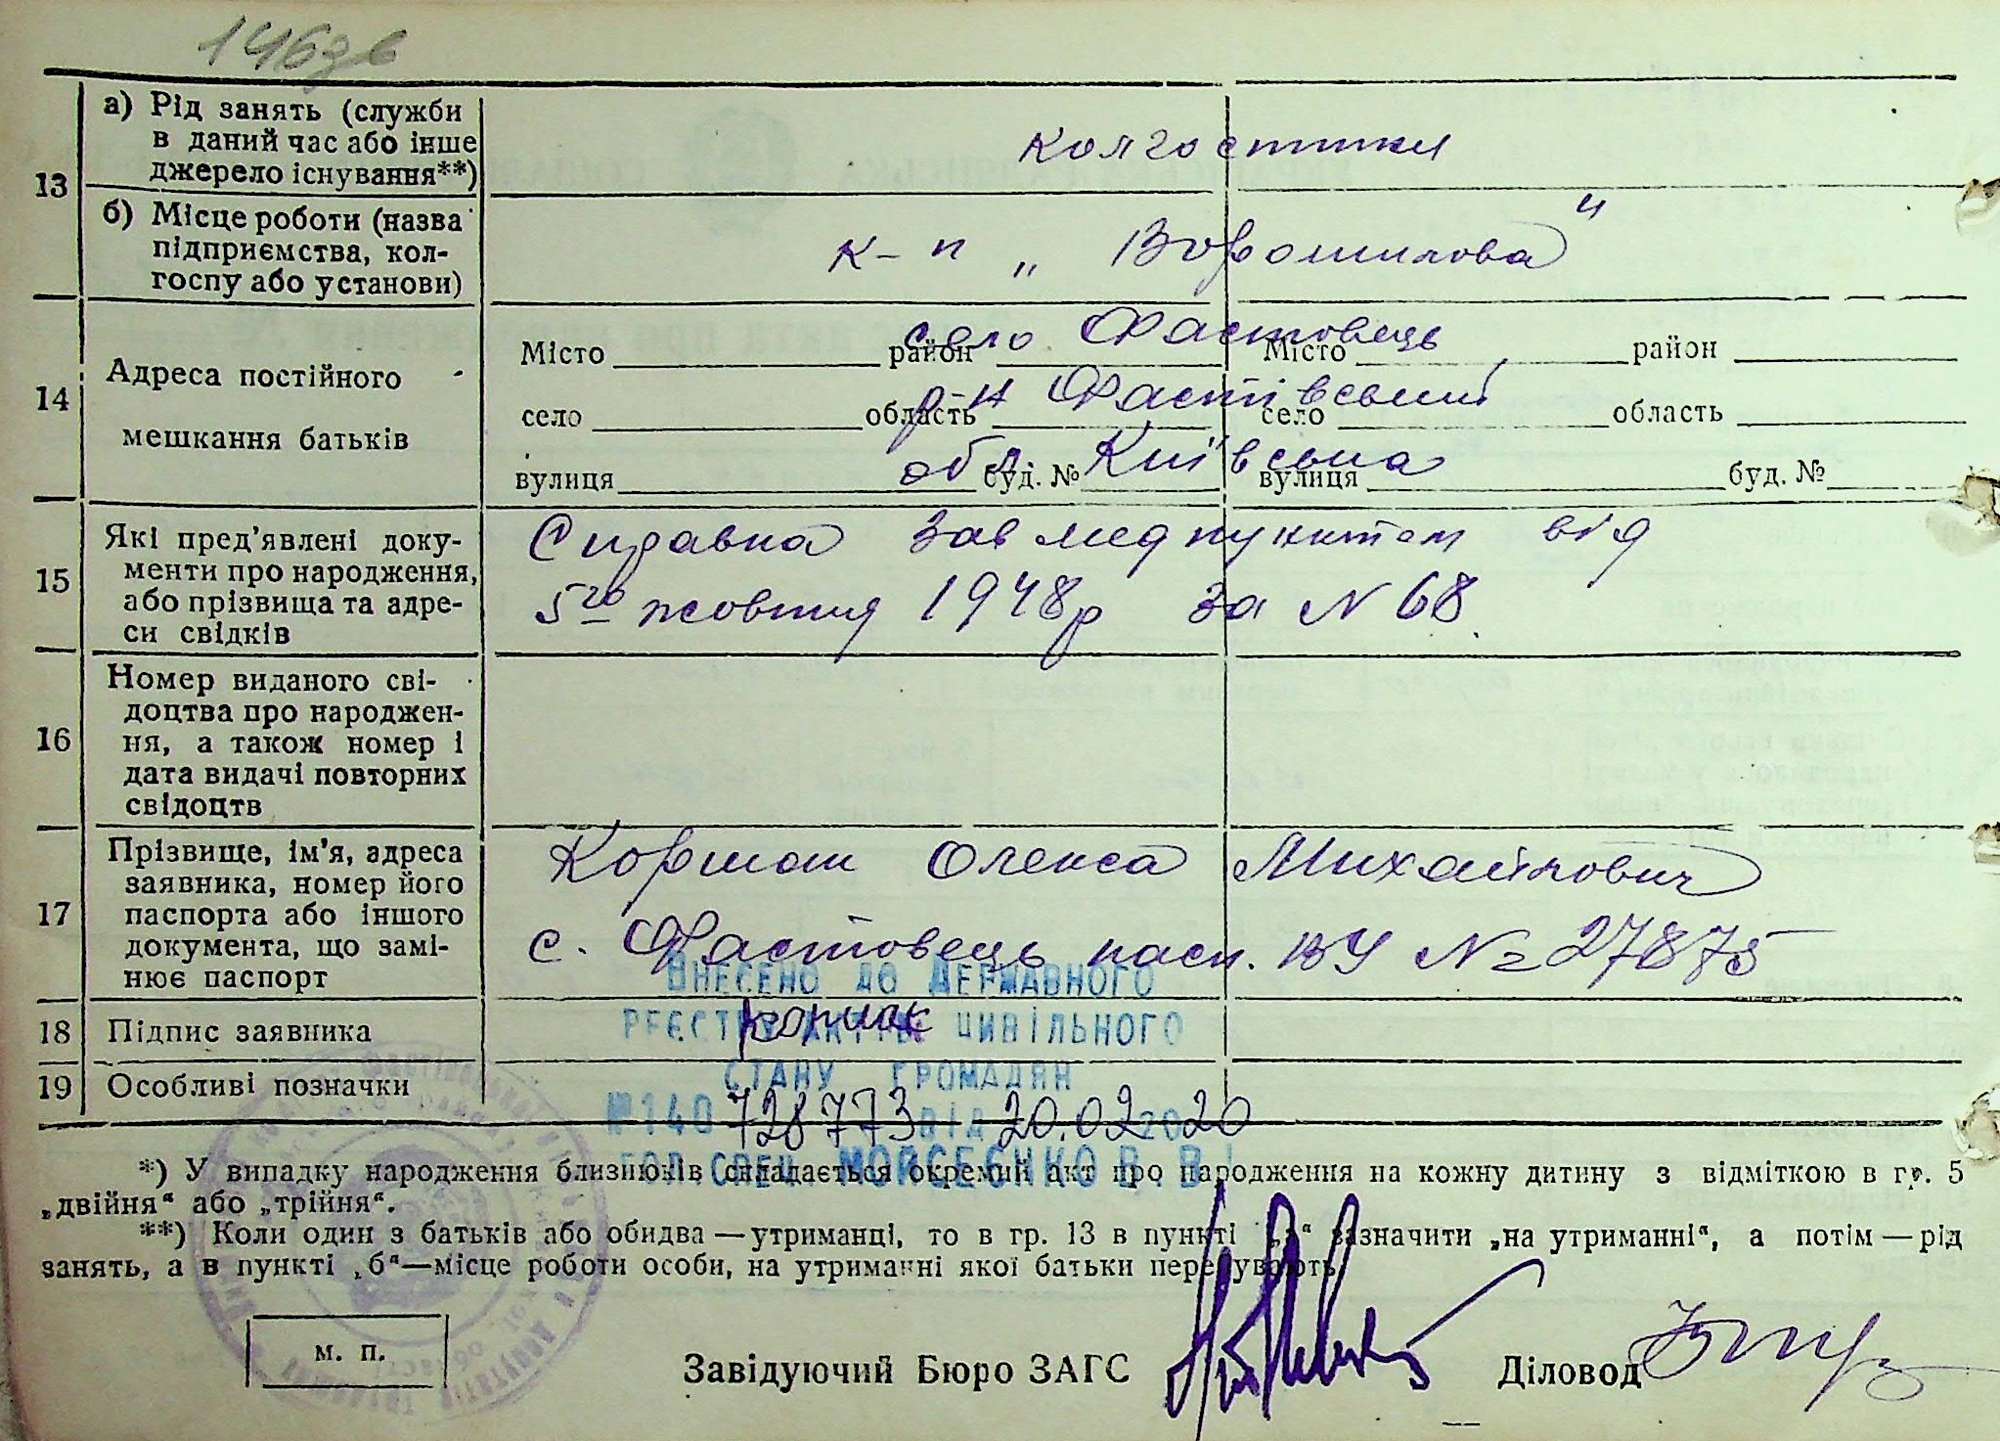 146зв
13
а) Рід занять (служби
в даний час або інше
джерело існування**)
колгоспники
б) Місце роботи (назва
підприємства, кол-
госпу або установи)
к-п „Ворошилова"
14
Адреса постійного
мешкання батьків
Місто район Місто район
село Фастовець
село область село область
р-н Фастівський
вулиця буд. № вулиця буд. №
обл. Київська
15
Які пред'явлені доку-
менти про народження,
або прізвища та адре-
си свідків
Справка Завмедпунктом від
5го жовтня 1948р за N 68.
16
Номер виданого сві-
доцтва про народжен-
ня, а також номер і
дата видачі повторних
свідоцтв
17
Прізвище, ім'я, адреса
заявника, номер його
паспорта або іншого
документа, що замі-
нює паспорт
Коршак Олекса Михайлович
с. Фастовець пасп. ВУ № 27875
18
Підпис заявника
Коршак
19
Особливі позначки
ВНЕСЕНО ДО ДЕРЖАВНОГО
РЕЄСТРУ АКТІВ ЦИВІЛЬНОГО
СТАНУ ГРОМАДЯН
№140 728773 від 20.02.2020
ГОЛ.СПЕЦ. МОЙСЕЄНКО В.В.
*) У випадку народження близнюків складається окремий акт про народження на кожну дитину з відміткою в гр. 5
„двійня“ або „трійня“.
**) Коли один з батьків або обидва — утриманці, то в гр. 13 в пункті „а“ зазначити „на утриманні“, а потім — рід
занять, а в пункті „б“—місце роботи особи, на утриманні якої батьки перебувають.
м. п.
Завідуючий Бюро ЗАГС
Діловод